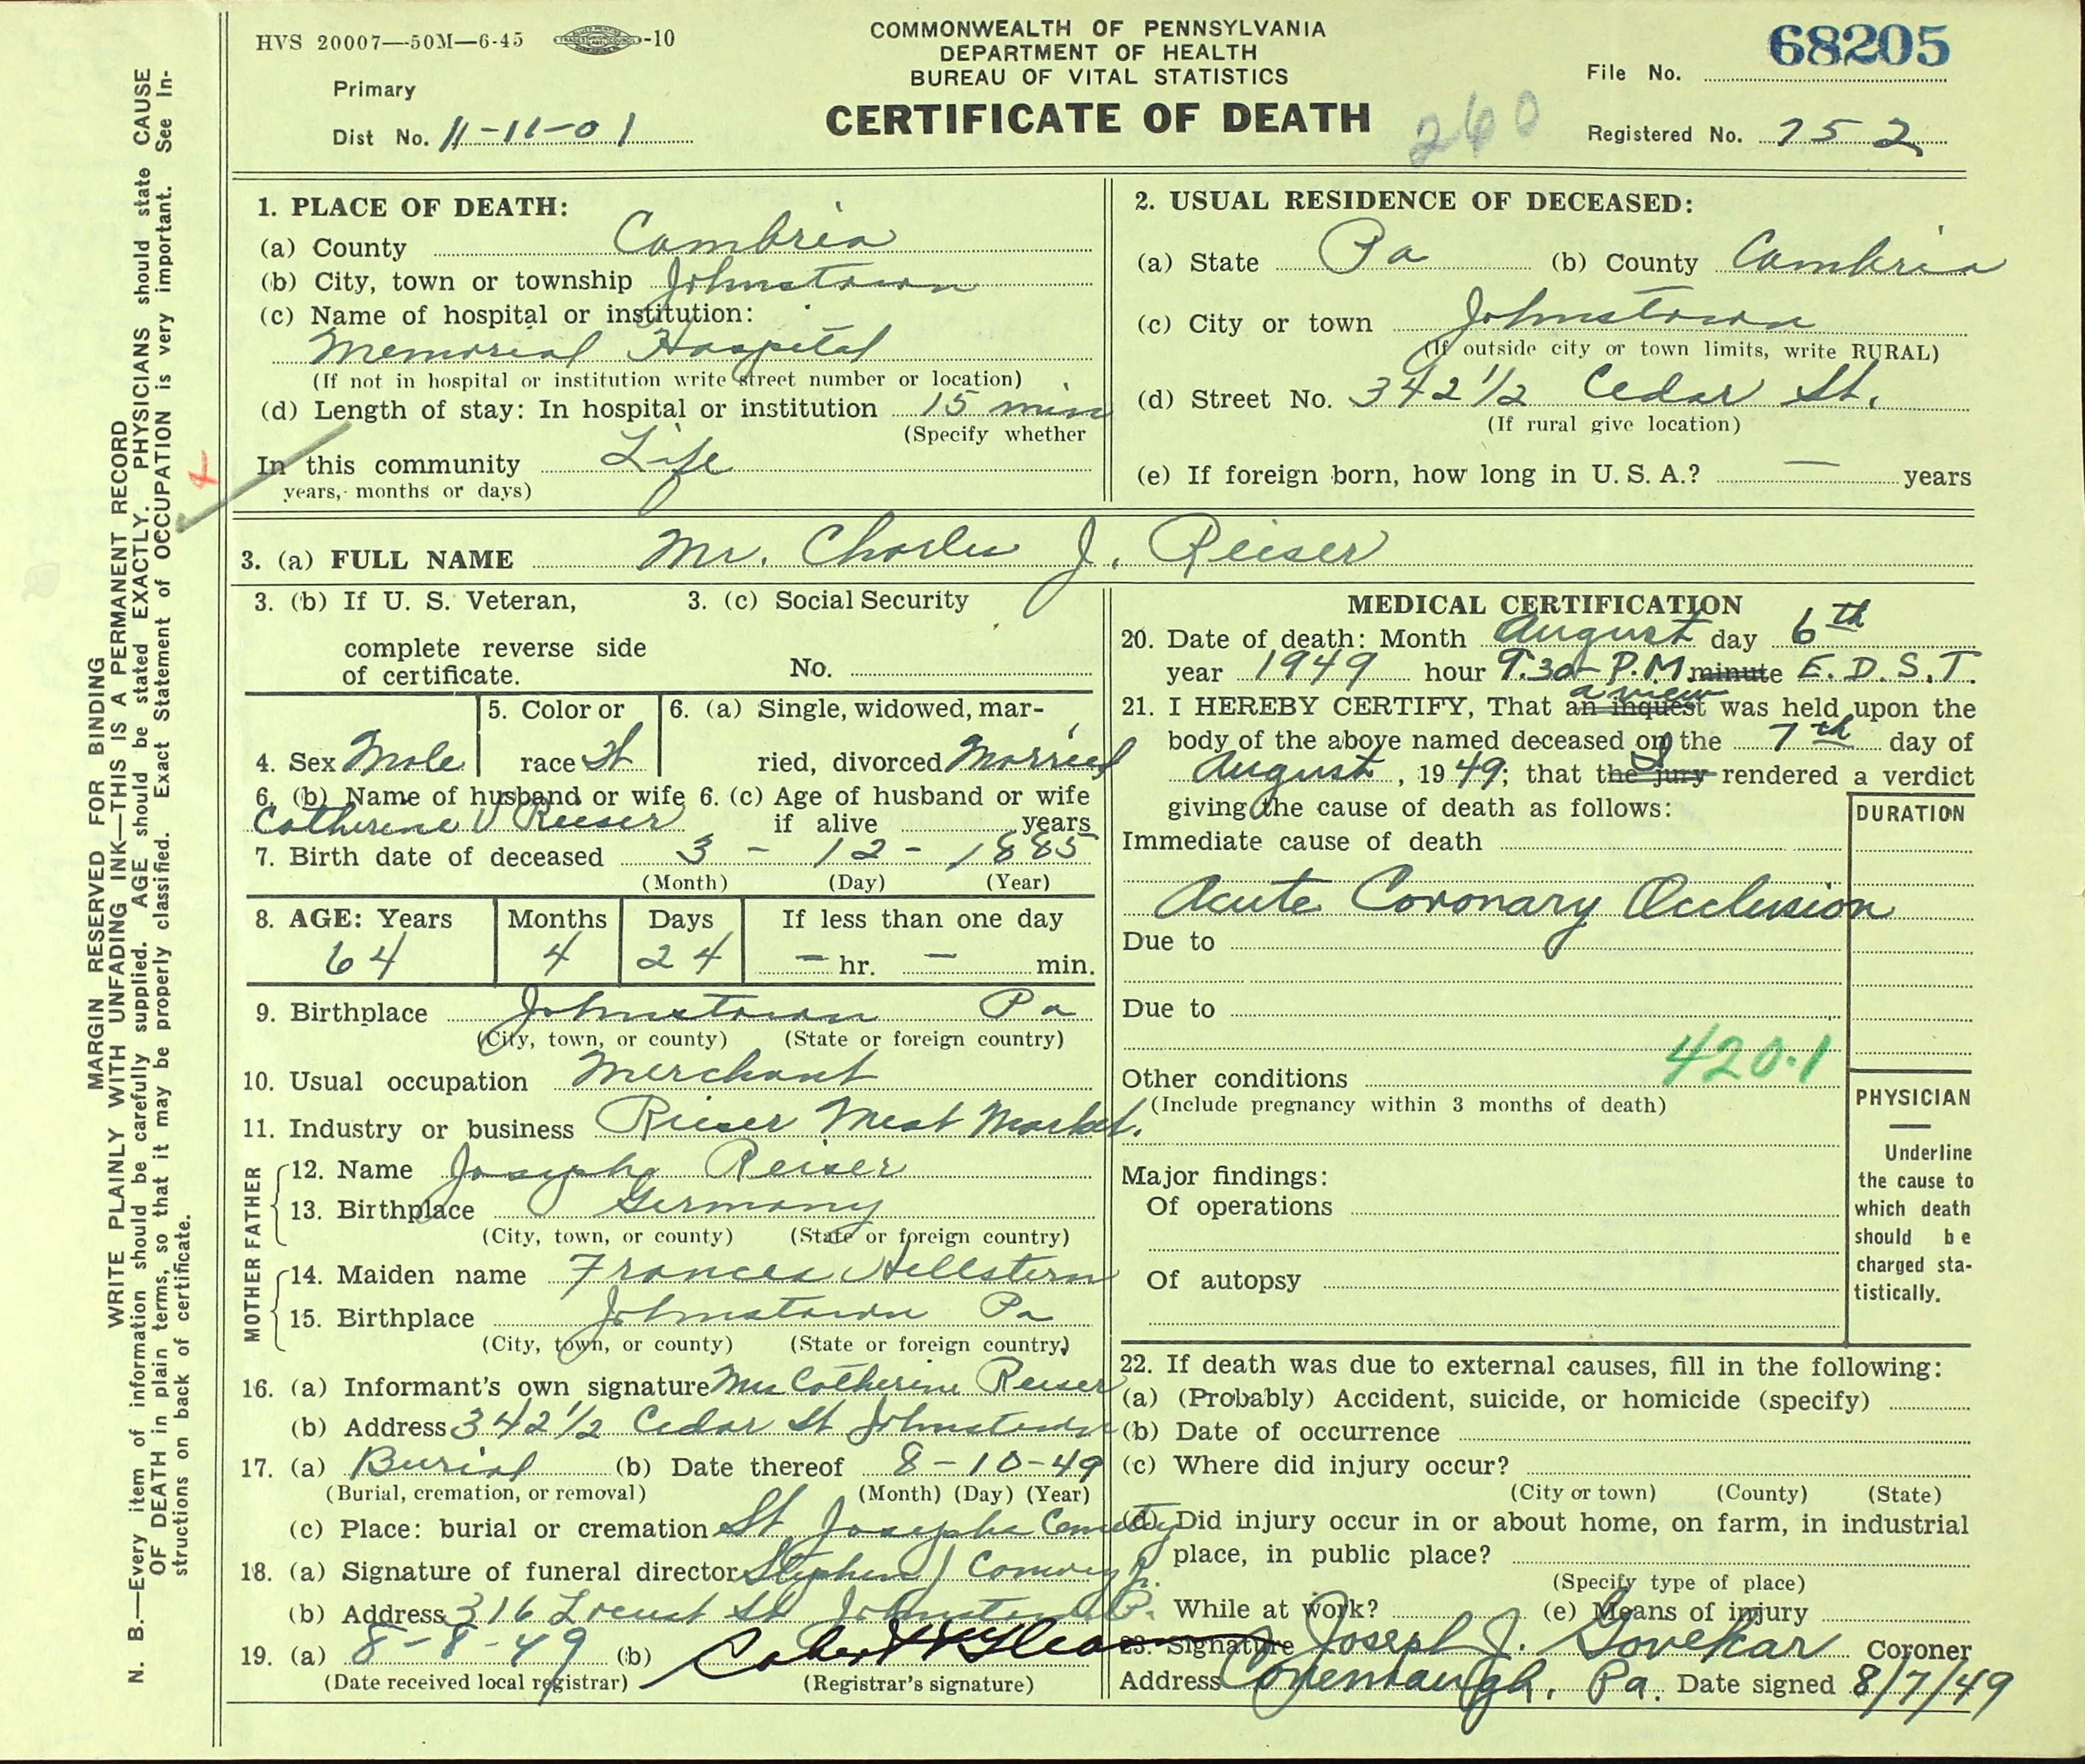 HVS 20007—50M—6-45 -10
COMMONWEALTH OF PENNSYLVANIA
DEPARTMENT OF HEALTH
BUREAU OF VITAL STATISTICS
CERTIFICATE OF DEATH
260
File No. 68205
Primary
Dist No. 11-11-01
Registered No. 752
MARGIN RESERVED FOR BINDING
WRITE PLAINLY WITH UNFADING INK—THIS IS A PERMANENT RECORD
N. B.—Every item of information should be carefully supplied. AGE should be stated EXACTLY. PHYSICIANS should state CAUSE
OF DEATH in plain terms, so that it may be properly classified. Exact Statement of OCCUPATION is very important. See In-
structions on back of certificate.
1. PLACE OF DEATH:
(a) County Cambria
(b) City, town or township Johnstown
(c) Name of hospital or institution:
Memorial Hospital
(If not in hospital or institution write street number or location)
(d) Length of stay: In hospital or institution 15 min
(Specify whether
In this community Life
years, months or days)
2. USUAL RESIDENCE OF DECEASED:
(a) State Pa (b) County Cambria
(c) City or town Johnstown
(If outside city or town limits, write RURAL)
(d) Street No. 342 1/2 Cedar St.
(If rural give location)
(e) If foreign born, how long in U. S. A.? — years
3. (a) FULL NAME Mr. Charles J. Reiser
3. (b) If U. S. Veteran,
complete reverse side
of certificate.
3. (c) Social Security
No.
4. Sex Male
5. Color or
race W
6. (a) Single, widowed, mar-
ried, divorced Married
6. (b) Name of husband or wife
Catherine V Reiser
6. (c) Age of husband or wife
if alive years
7. Birth date of deceased 3 - 12 - 1885
(Month) (Day) (Year)
8. AGE: Years Months Days If less than one day
64 4 24 — hr. — min.
9. Birthplace Johnstown Pa
(City, town, or county) (State or foreign country)
10. Usual occupation Merchant
11. Industry or business Reiser Meat Market.
FATHER
12. Name Josephe Reiser
13. Birthplace Germany
(City, town, or county) (State or foreign country)
MOTHER
14. Maiden name Frances Hellstern
15. Birthplace Johnstown Pa
(City, town, or county) (State or foreign country)
16. (a) Informant's own signature Mrs Catherine Reiser
(b) Address 342 1/2 Cedar St Johnstown
17. (a) Burial (b) Date thereof 8-10-49
(Burial, cremation, or removal) (Month) (Day) (Year)
(c) Place: burial or cremation St. Josephs Cemetery
18. (a) Signature of funeral director Stephen J Conway
(b) Address 316 Locust St Johnstown
19. (a) 8-8-49 (b)
(Date received local registrar) (Registrar's signature)
MEDICAL CERTIFICATION
20. Date of death: Month August day 6th
year 1949 hour 9:30 P.M. minute E. D. S. T.
a view
21. I HEREBY CERTIFY, That an inquest was held upon the
body of the above named deceased on the 7th day of
August, 1949; that the jury I rendered a verdict
giving the cause of death as follows:
DURATION
Immediate cause of death
Acute Coronary Occlusion
Due to
Due to
420.1
Other conditions
(Include pregnancy within 3 months of death)
PHYSICIAN
—
Underline
the cause to
which death
should be
charged sta-
tistically.
Major findings:
Of operations
Of autopsy
22. If death was due to external causes, fill in the following:
(a) (Probably) Accident, suicide, or homicide (specify)
(b) Date of occurrence
(c) Where did injury occur?
(City or town) (County) (State)
(d) Did injury occur in or about home, on farm, in industrial
place, in public place?
(Specify type of place)
While at work? (e) Means of injury
23. Signature Joseph J. Govekar Coroner
Address Conemaugh, Pa. Date signed 8/7/49